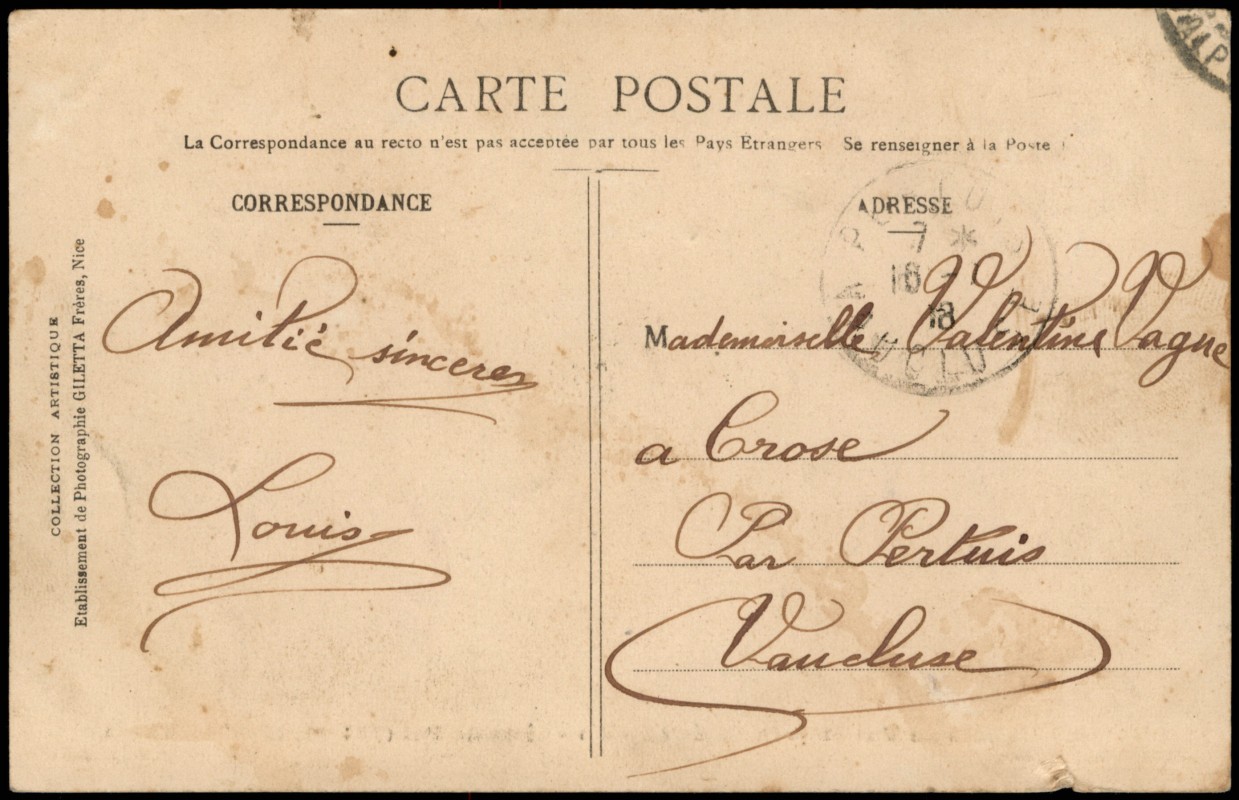 CARTE POSTALE
La Correspondance au recto n'est pas acceptée par tous les Pays Etrangers Se renseigner à la Poste
CORRESPONDANCE
Amitié sincères
Louis
COLLECTION ARTISTIQUE
Etablissement de Photographie GILETTA Frères, Nice
ADRESSE
Mademoiselle Valentine Vague
a Crose
Par Pertuis
Vaucluse
7 *
16
VAUCLUSE